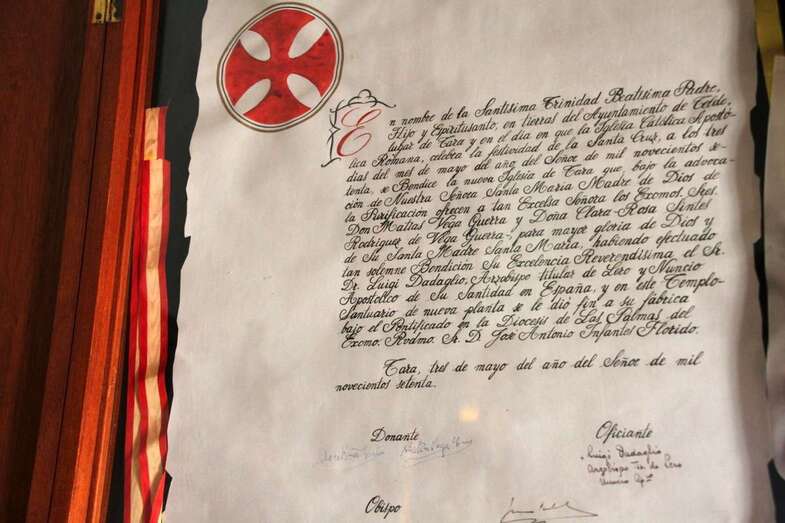 En nombre de la Santísima Trinidad Beatísima Padre,
Hijo y Epíritusanto, en tierras del Ayuntamiento de Telde,
lugar de Tara y en el día en que la Iglesia Católica Apostó-
lica Romana, celebra la festividad de la Santa Cruz, a los tres
días del mes de mayo del año del Señor de mil novecientos se-
tenta, se Bendice la nueva Iglesia de Tara que, bajo la advoca-
ción de Nuestra Señora Santa María Madre de Dios de
la Purificación ofrecen a tan Excelsa Señora los Excmos. Sres.
Don Matías Vega Guerra y Doña Clara-Rosa Sintes
Rodríguez de Vega Guerra, para mayor gloria de Dios y
de Su Santa Madre Santa María, habiendo efectuado
tan solemne Bendición Su Excelencia Reverendísima el Sr.
Dr. Luigi Dadaglio, Arzobispo titular de Lero y Nuncio
Apostólico de Su Santidad en España, y en este Templo-
Santuario de nueva planta se le dió fin a su fábrica
bajo el Pontificado en la Diócesis de Las Palmas del
Excmo. Rvdmo. Sr. D. José Antonio Infantes Florido.
Tara, tres de mayo del año del Señor de mil
novecientos setenta.
Donante
Oficiante
Luigi Dadaglio
Arzobispo Tit. de Lero
Nuncio Ap.
Obispo